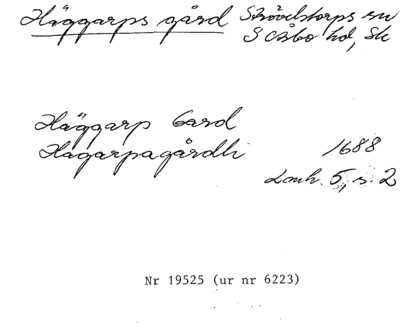 Häggarps gård Strövelstorps sn
S Åsbo hd, Sk
Häggarp Gard
Hagarpagårdh 1688
Lonh. 5, s. 2
Nr 19525 (ur nr 6223)